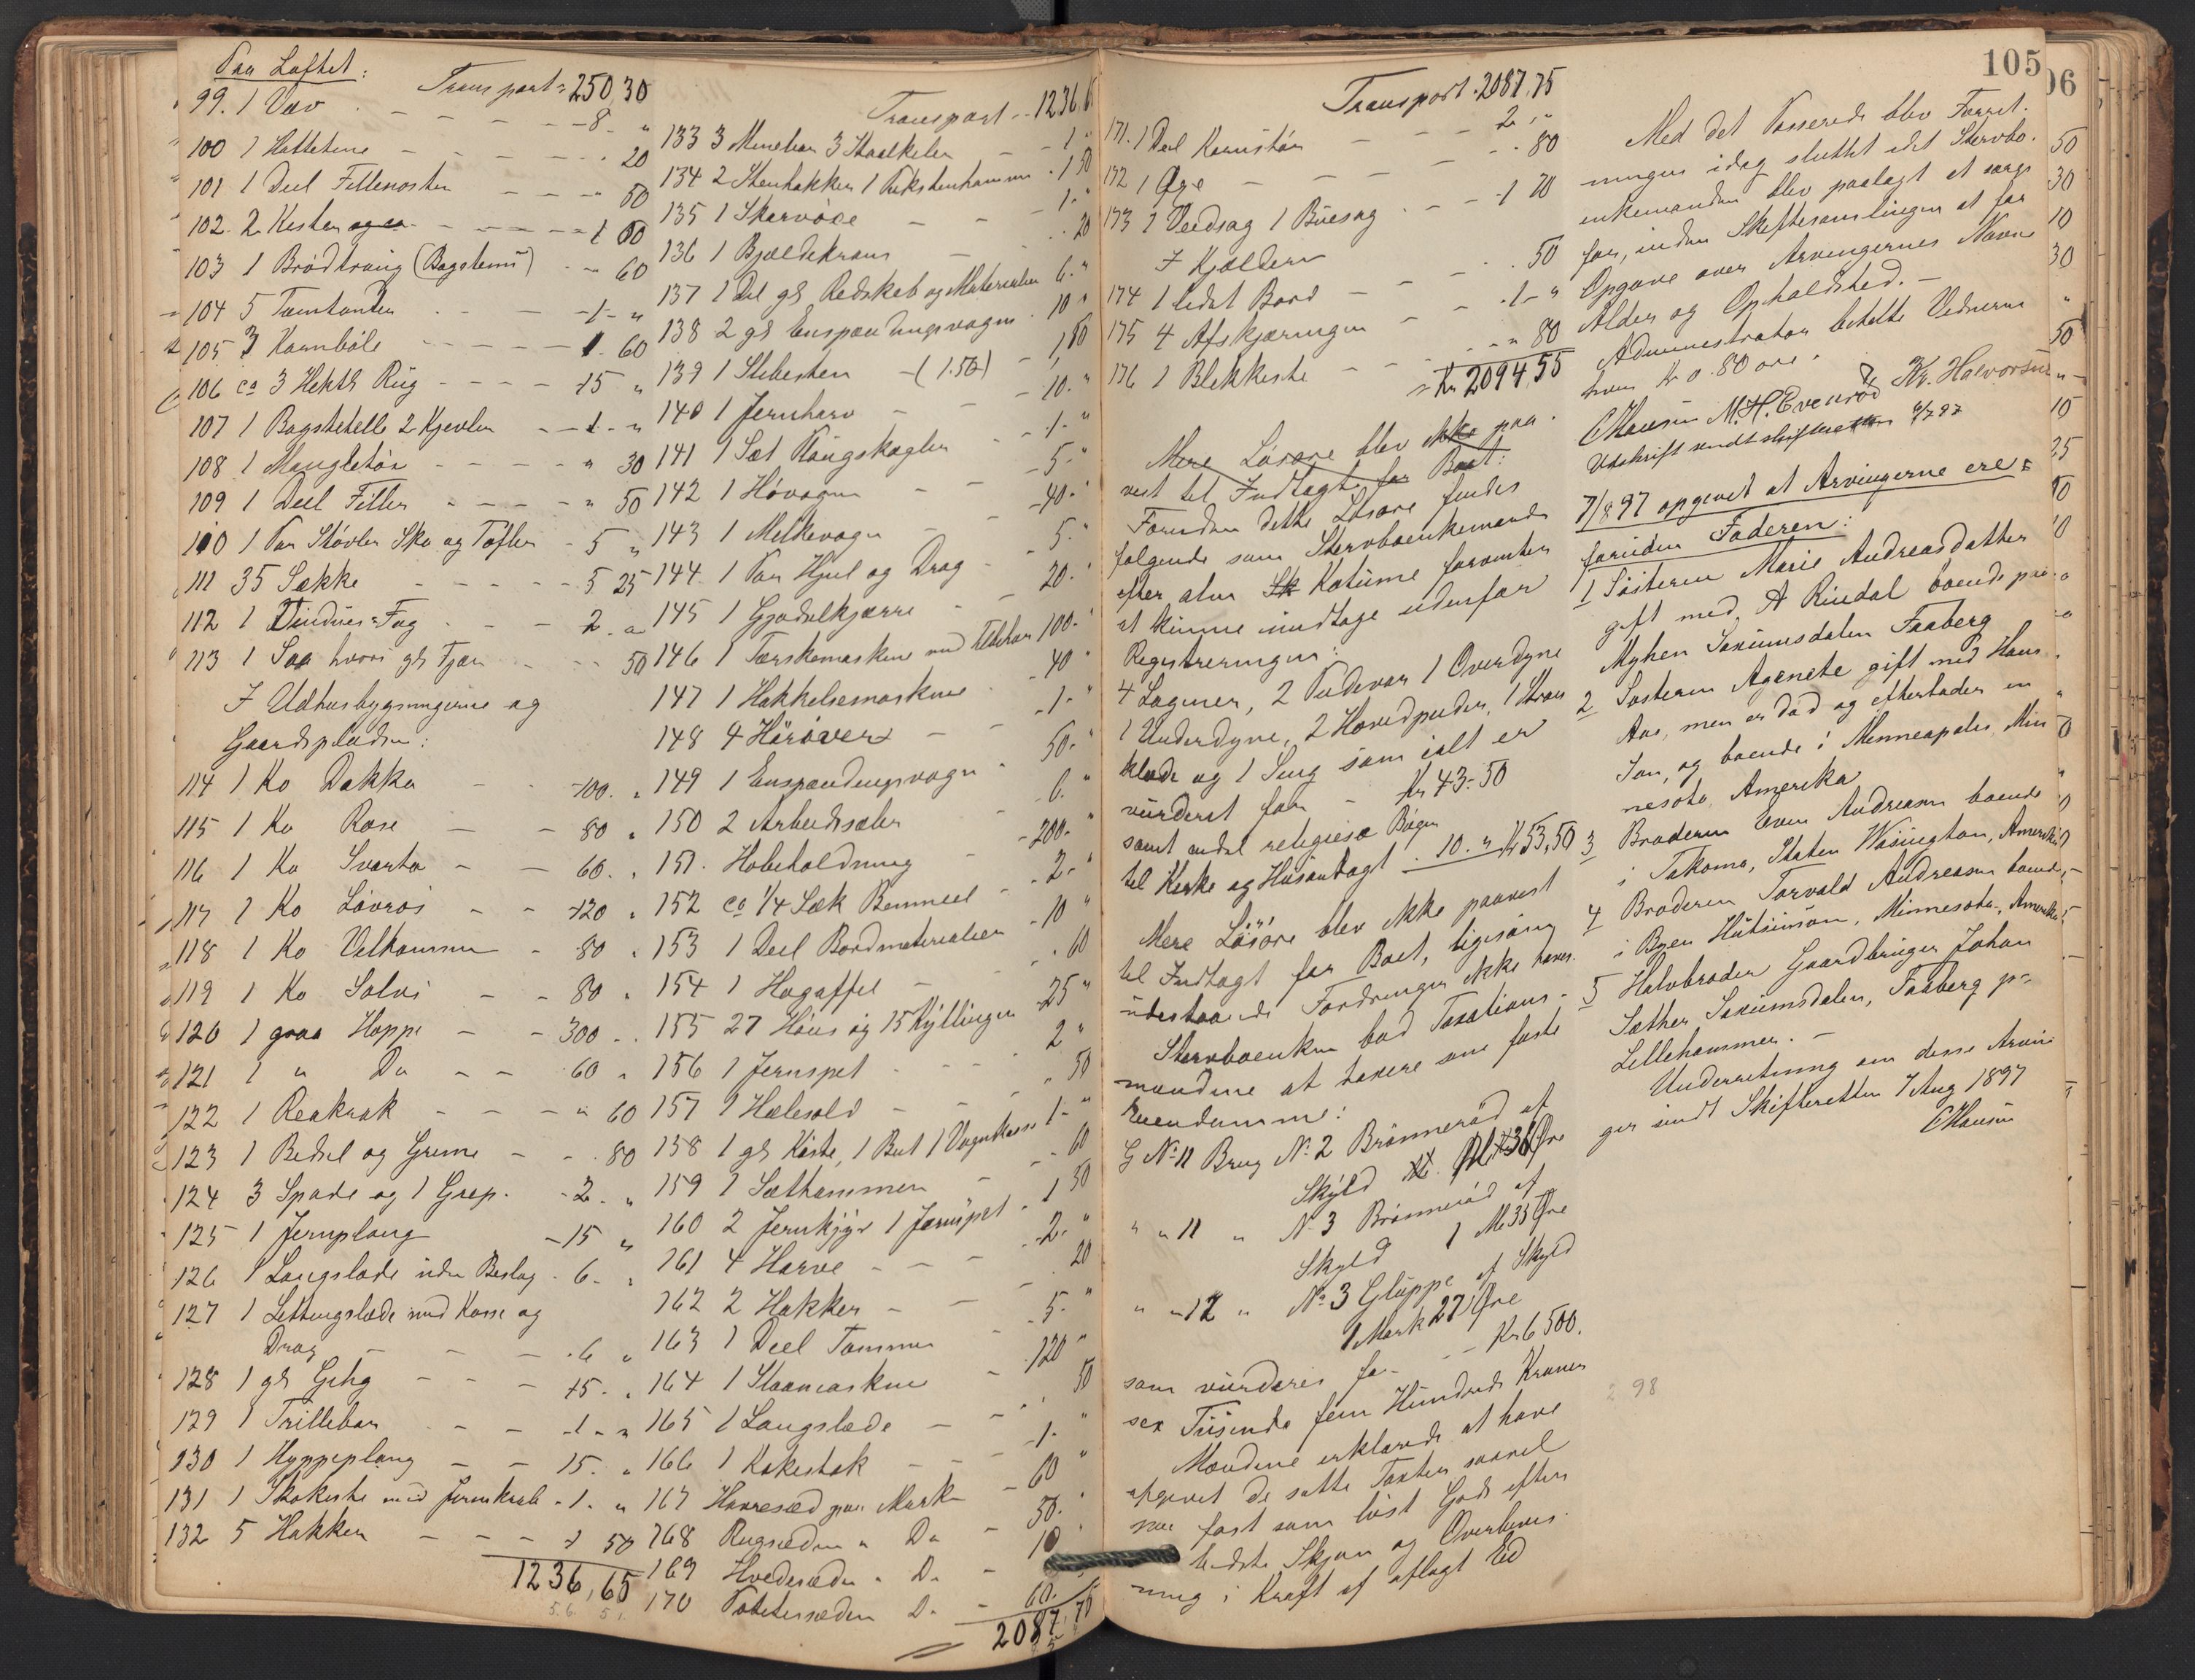 Paa Loftet:
Transport = 250,30
99. 1 Væv - - - - 8 - "
100 1 Hattetine - - - - 20
101 1 Deel Filleposter - - - 50
102. 2 Kister - - - - 1 00
103 1 Brødtraug (Bagstetru) - - 60
104 5 Tomtønder - - 1 - "
105 3 Kornbøle - - - - 1. 60
106 ca 3 Hektl Rug - - - - 15 "
107 1 Bagstehelle 2 Kjevler - - 1 - "
108 1 Mangletøi - - - - " 30
109 1 Deel Filler - - - - " 50
110 1 Par Støvler Sko og Tøfler - 5 "
111 35 Sække - - - - - 5 25
112 1 Vindues-Fag - - - 2. "
113 1 Saa hvori gl Tjære - - - 50
I Udhusbygningerne og
Gaardspladsen:
114 1 Ko Dokka - - 100. "
115 1 Ko Rose - - 80 "
116 1 Ko Svarta - - 60. "
117 1 Ko Løvros - - 120 "
118 1 Ko Velkommen - 80 "
119 1 Ko Solvi - - 80 "
120 1 graa Hoppe - - 300 - "
121 1 " Do - - 60 "
122 1 Reakrak - - - " 60
123 1 Bedsel og Grime - - - 80
124 3 Spade og 1 Grep. - 2. "
125 1 Jernploug - 15 "
126 1 Langslæde uden Beslag - 6. "
127 1 Lettingslæde med Kasse og
Drag - - - 6 "
128 1 gl Gehg - - - 15. "
129 1 Trillebør - - - 1 - "
130 1 Hyppeploug - - 15. "
131 1 Skokiste med Jernskrab - 1. "
132 5 Hakker - - - 1 50
1236,65
Transport - - 1236.65
133 3 Minebor 3 Staalkiler - - 1 "
134 2 Stenhakker 1 Pukstenhammer - 1 50
135 1 Skarvøxe - - 1. "
136 1 Bjældekrans - - 20
137 1 Del gl Redskab og Materialer 6. "
138 2 gl Enspændingsvogne - 10 "
139 1 Slibesten - (1.50) - 1,50
140 1 Jernharv - - 10. "
141 1 Sæt Vaugskagler - - 1. "
142 1 Høvogn - - 5 - "
143 1 Melkevogn - - 40 - "
144 1 Par Hjul og Drag - 5. "
145 1 Gjødselkjærre - - 20. "
146 1 Tærskemaskine med Tilbehør 100. "
147 1 Hakkelsemaskine - 40 "
148 4 Hørøver - - 1 - "
149 1 Enspændingsvogn - 50. "
150 2 Arbeidsseler - 6. "
151. Høbeholdning - 200. "
152 ca 1/4 Sæk Benmeel - 2 - "
153 1 Deel Bordmaterialier - 10 "
154 1 Høgaffel - - 60
155 27 Høns og 15 Kyllinger - 25 "
156 1 Jernspet - - - 2 "
157 1 Hælesold - - - " 50
158 1 gl Kiste, 1 But 1 Vognkasse 1 - "
159 1 Sæthammer - - - 60
160 2 Jernkjyr 1 Jernspet - 1 50
161 4 Harve - - - 2 - "
162 2 Hakker - - - 20
163 1 Deel Tømmer - 5. "
164 1 Slaamaskine - 120 "
165 1 Langslæde - - ' 50
166 1 Kakestak - - - 1. "
167 Havresæd paa Mark - 60 "
168 Rugsæden " Do - 50. "
169 Hvedesæden " Do - 10
170 Potetessæden Do - 60.
2087,70
105
Transport . 2087,75
171. 1 Deel Kornstør - - - 2. "
172 1 Øxe - - - 80
173 1 Vedsag 1 Buesag - - - 1 70
I Kjælderen
174 1 lidet Bord - - - 50
175 4 Afskjæringer - - 1 - "
176 1 Blikkiste - - - " 80
= Kr 2094,55
Mere Løsøre blev ikke paa-
vist til Indtægt for Boet:
Foruden dette Løsøre findes
følgende som Stervboenkemanden
efter alm Kotume forventer
at kunne undtage udenfor
Registreringen:
4 Lagner, 2 Pudevar 1 Overdyne
1 Underdyne, 2 Hovedpuder, 1
klæde og 1 Seng som ialt er
vurderet for - Kr 43-50
samt endel religiøse Bøger
til Kirke og Husandagt - 10. " Kr 53,50
Mere Løsøre blev ikke paavist
til Indtægt for Boet, ligesom
udestaaende Fordringer ikke haves.
Stervboenken bad Taxations-
mændene at taxere sine faste
Eiendomme:
G No 11 Brug No 2 Brønnerød af
Skyld 36 Øre
" " 11 " No 3 Brønnerød af
Skyld 1 M. 33 Øre
" " 12 " No 3 Gluppe af Skyld
1 Mark 27 Øre
som vurderes for - - Kr 6500.
sex Tusinde fem Hundrede Kroner
Mændene erklærede at have
afgivet de satte Taxter saavel
paa fast som løst Gods efter
bedste Skjøn og Overbevis-
ning i Kraft af aflagt Eed
Med det Passerede blev Forret-
ningen idag sluttet idet Stervbo-
enkemanden blev paalagt at sørge
for, inden Skiftesamlingen at faa
Opgave over Arvingernes Navne
Alder og Opholdssted. -
Administrator betalte Vidnerne
hver Kr 0.80 øre.
CHansen M.H. Evenrød Kr. Halvorsen
Udskrift sendt skifteretten 6/7 97
7/8 97 opgivet at Arvingerne ere =
foruden Faderen:
1 Søsteren Marie Andreasdatter
gift med A Rindal boende paa
Myhen Saxumsdalen Faaberg
2 Søsteren Agenete gift med Hans
Aas, men er død og efterlader en
Søn, og boende i Minneapolis Min
nesota Amerika
3 Broderen Even Andreasen boende
i Takoma, Staten Wasington, Amerika
4 Broderen Torvald Andreasen boende
i Byen Hutsinson, Minnesota, Amerika
5 Halvbroder Gaardbruger Johan
Sæther Saxumsdalen, Faaberg pr
Lillehammer. -
Underretning om disse Arvin
ger sendt Skifteretten 7 Aug 1897
CHansen
98